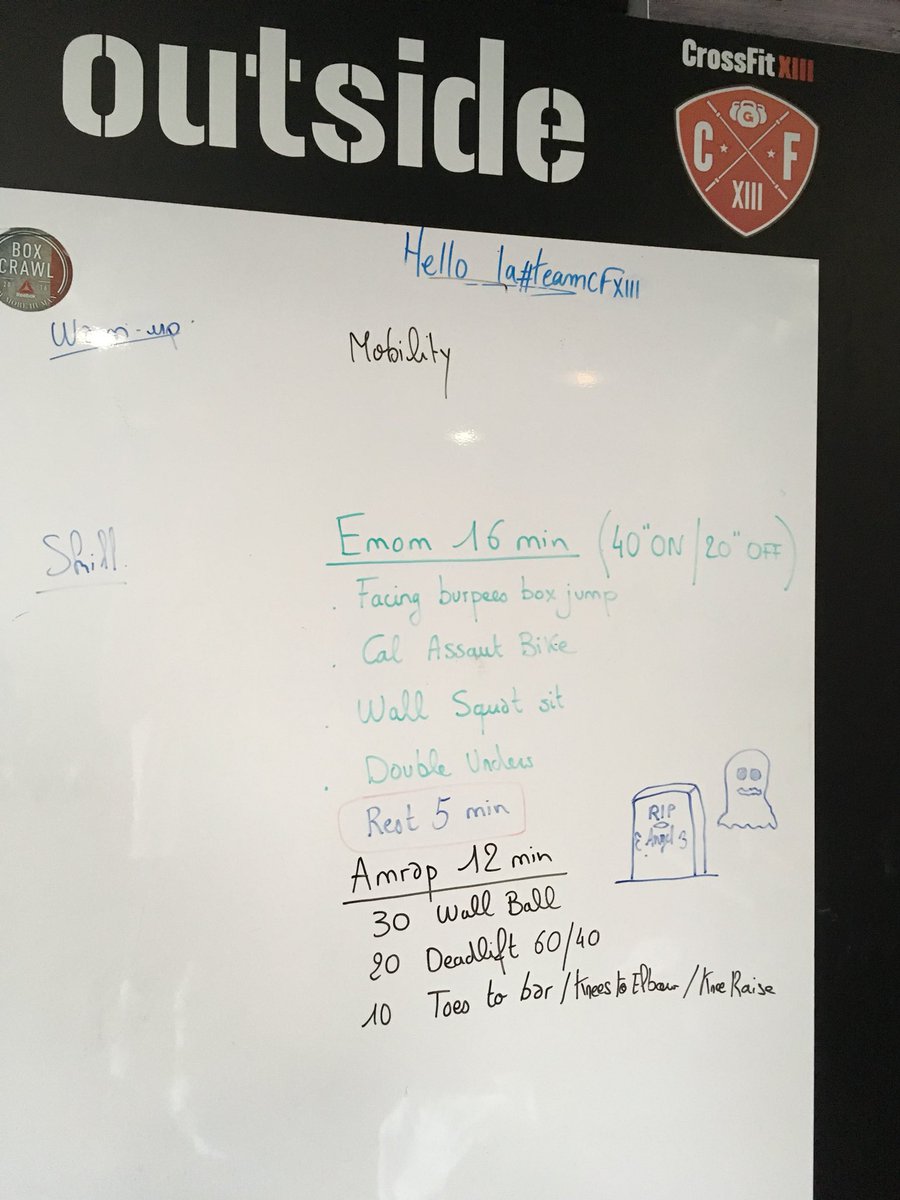 outside
CrossFit XIII
G
C F
XIII
BOX
CRAWL
Reebok
Hello la#teamCFXIII
Warm-up
Mobility
Skill
Emom 16 min (40" ON / 20" OFF)
. Facing burpees box jump
. Cal Assaut Bike
. Wall Squat sit
. Double Unders
Rest 5 min
RIP
Angel
Amrap 12 min
30 Wall Ball
20 Deadlift 60/40
10 Toes to bar / Knees to Elbow / Knee Raise